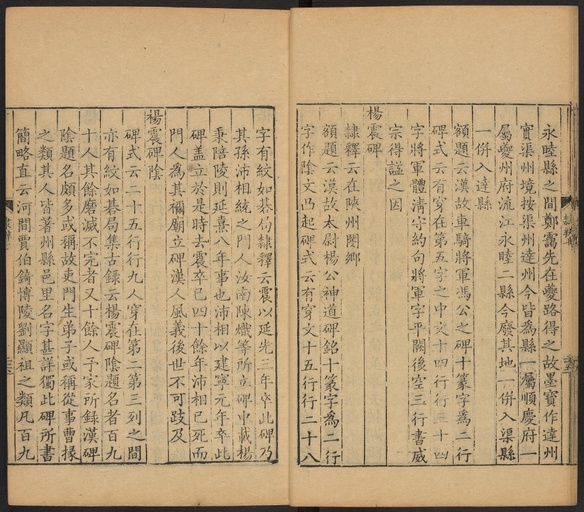 永睦縣之間鄭靄先在夔路得之故墨寶作達州
實渠州境按渠州達州今皆為縣一屬順慶府一
屬夔州府流江永睦二縣今廢其地一併入渠縣
一併入達縣
額題云漢故車騎將軍馮公之碑十篆字為二行
碑式云有穿在第五字之中文十四行行三十四
字將軍體清字約句將軍字平闕後空三行書威
宗得謚之因
楊震碑
隸釋云在陝州閿鄉
額題云漢故太尉楊公神道碑銘十篆字為二行
字作陰文凸起碑式云有穿文十五行行二十八
字有紋如棊局隸釋云震以延光三年卒此碑乃
其孫沛相統之門人汝南陳熾等所立碑中載楊
秉陪陵則延熹八年事也沛相以建寧元年卒此
碑蓋立於是時去震卒已四十餘年沛相已死而
門人為其禰廟立碑漢人風義後世不可跂及
楊震碑陰
碑式云二十五行行九人穿在第二第三列之間
亦有紋如棊局集古錄云楊震碑陰題名者百九
十人其餘磨滅不完者又十餘人予家所錄漢碑
陰題名頗多或稱故吏門生弟子或稱從事曹掾
之類其人皆著州縣邑里名字甚詳獨此碑所書
簡略直云河間賈伯錡博陵劉顯祖之類凡百九